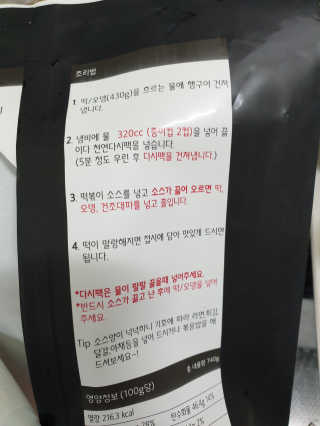 조리법
1. 떡/오뎅(430g)을 흐르는 물에 헹구어 건져
냅니다.
2. 냄비에 물 320cc (종이컵 2컵)을 넣어 끓
이다 천연다시팩을 넣습니다.
(5분 정도 우린 후 다시팩을 건져냅니다.)
3. 떡볶이 소스를 넣고 소스가 끓어 오르면 떡,
오뎅, 건조대파를 넣고 졸입니다.
4. 떡이 말랑해지면 접시에 담아 맛있게 드시면
됩니다.
*다시팩은 물이 팔팔 끓을때 넣어주세요.
*반드시 소스가 끓고 난 후에 떡/오뎅을 넣어
주세요.
Tip 소스양이 넉넉하니 기호에 따라 라면,튀김,
달걀,야채등을 넣어 드시거나 볶음밥을 해
드셔보세요~!
총 내용량 740g
영양정보 (100g당)
열량 216.3 kcal
탄수화물 46.4g 14%